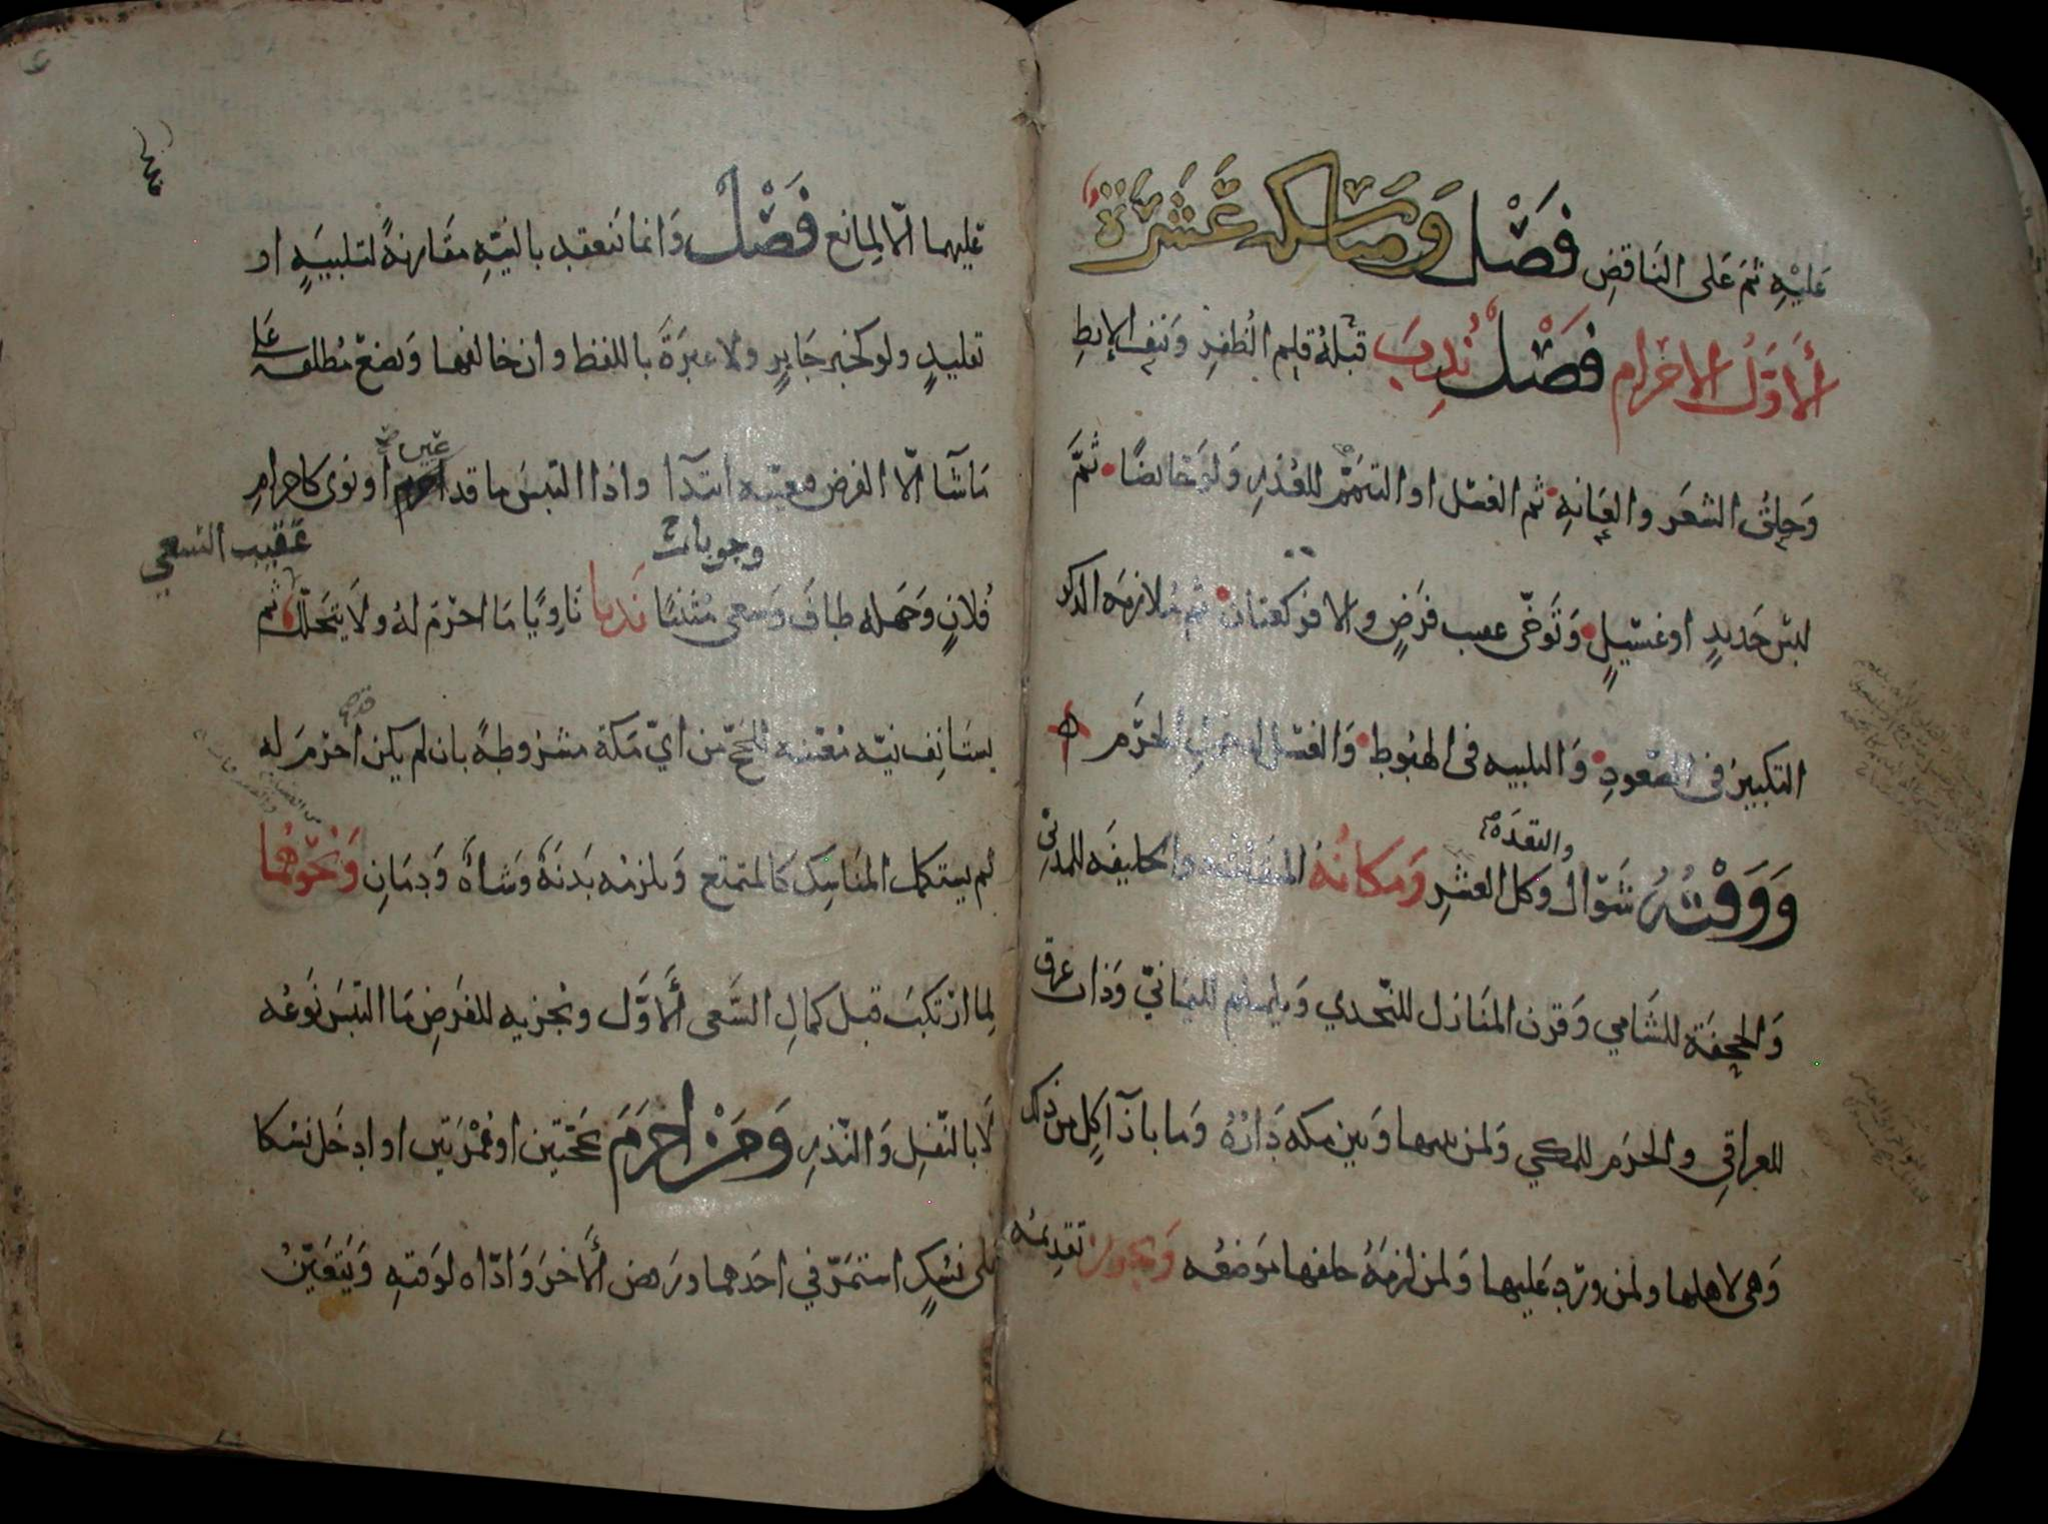 عَليْهِ ثمّ عَلى النَاقضِ فَصْل وَمناسكه عَشَرَة
ألأوَّلُ الاحْرام فَصْل نُدِبَ قبْلهُ قلم الظفرِ وَنتف الإبطِ
وَحلقُ الشعَر والعَانةِ ثم الغسْل او التيمّم للعُذرِ وَلوْ حَائضًا ثمَّ
لبسُ جَديدٍ او غسَيلٍ وَتَوخّى عقيب فَرْضٍ والا فركعتان ثم مُلازمَه الذكر
التكبير فى الصُعودِ وَالتلبيه فى الهبُوط وَالغسْل لدخول الحرَم
والقعدَة
وَوَقْتُهُ شَوّال وكل العشْرِ وَمكانُهُ الميقات ذو الحليفَه للمدنيّ
وَالجحفَة للشَامي وَقرن المنَازل للنّجدي وَيلملم لليمَانيّ وَذات عرق
للعِراقِي والحَرَم للمكي وَلمن بينها وَبين مكه دَارُهُ وَما بازَآ كلٍ من ذلك
وَهى لاهلها ولمن ورَد عَليها وَلمن لزمَهُ خلفها مَوضعُه وَيجوز تقديمُه
عَليهما الّا لِمانع فَصْل وَانما ينعقد بالنيّهِ مقارنهً لتلبيَهٍ او
تقليدٍ ولو كخبر جَابرٍ ولا عبرَةَ باللفظ وان خالفها وَيضعْ مُطلقه عَلى
مَا شآ الّا الفرض فيعيّنه ابتدآ واذا التبسَ ما قد عيّن او نوَى كاحرامِ
وجوبا عَقيب السَعي
فُلانٍ وَجَهله طافَ وَسعى مُثنيًا نَدبا نَاوِيًا مَا احْرَمَ لهُ ولا يتحَلّلُ ثم
يستَانِف نيّه مُعيّنه للحَجّ من ايّ مَكة مشروطهً بان لم يكن احْرَمَ له
ثم يستكمل المنَاسِك كالمتمتع وَيلزمه بَدنَةً وَشاةً وَدمَانِ وَنحْوُهُما
لِما ارْتكبَ قبل كمالِ السَّعى ألاوَّل ويجزيه للفرَضِ مَا التبَسَ نَوْعُه
لَا بالنّفلِ وَالنّذرِ وَمَنْ احْرَمَ بحَجّتين او عُمْرَتين او ادخل نسُكا
على نسُكٍ استمرّ في احَدهما ورَفض ألاخرَ وَادّاه لوَقتهِ وَيتعَيّنُ